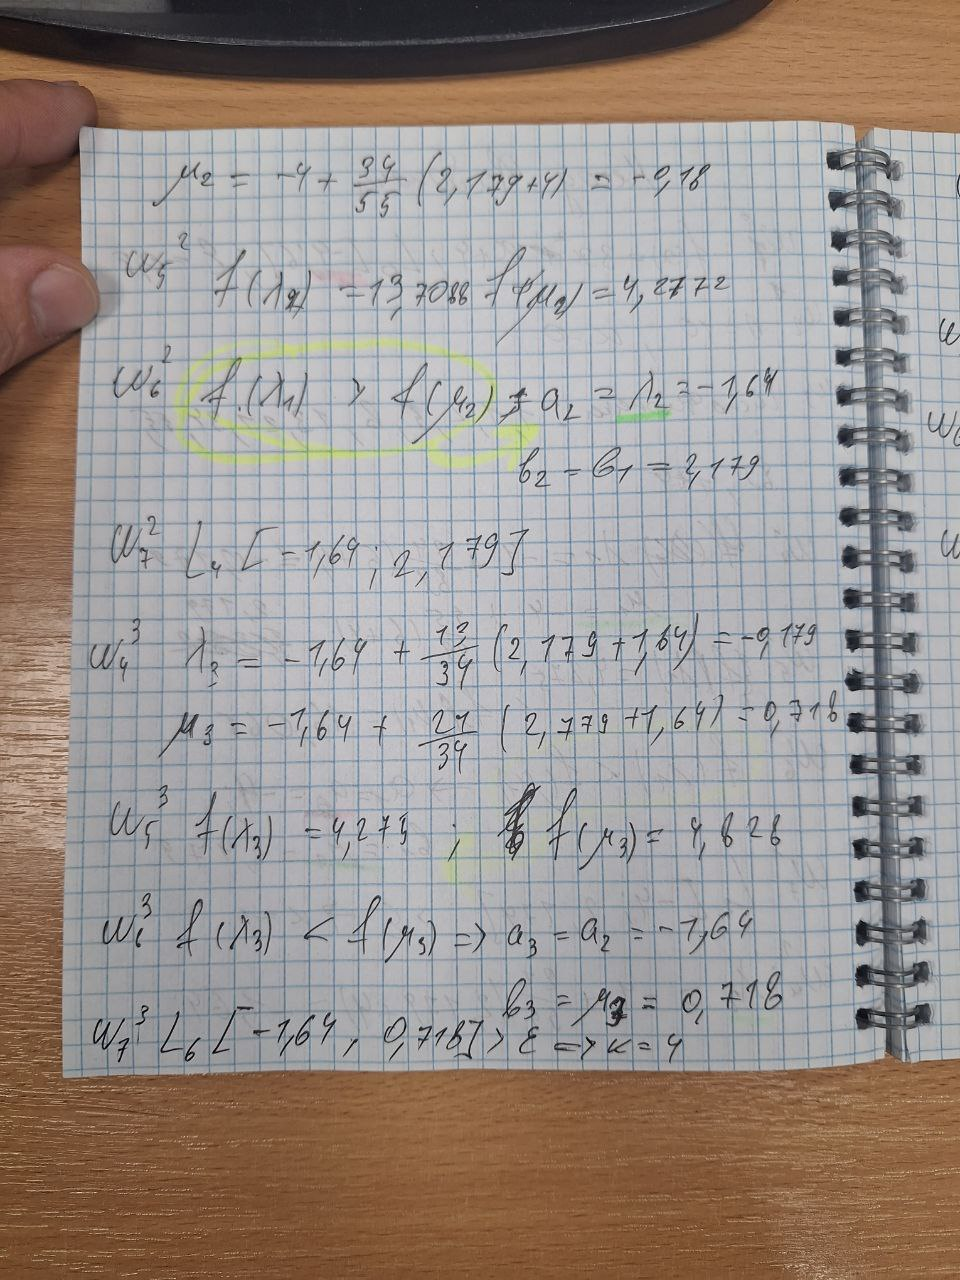 μ₂ = -4 + 34/55 (2,179+4) = -0,18
Ш₅² f(λ₂) = 13,7088 f(μ₂) = 4,2772
Ш₆² f(λ₁) > f(μ₂) ⇒ a₂ = λ₂ = -1,64
b₂ = b₁ = 2,179
Ш₇² L₄ [-1,64 ; 2,179]
Ш₄³ λ₃ = -1,64 + 13/34 (2,179+1,64) = -0,179
μ₃ = -1,64 + 21/34 (2,179+1,64) = 0,718
Ш₅³ f(λ₃) = 4,275 ; f(μ₃) = 4,828
Ш₆³ f(λ₃) < f(μ₃) => a₃ = a₂ = -1,64
b₃ = μ₃ = 0,718
Ш₇³ L₆ [-1,64 , 0,718] > ε => k = 4